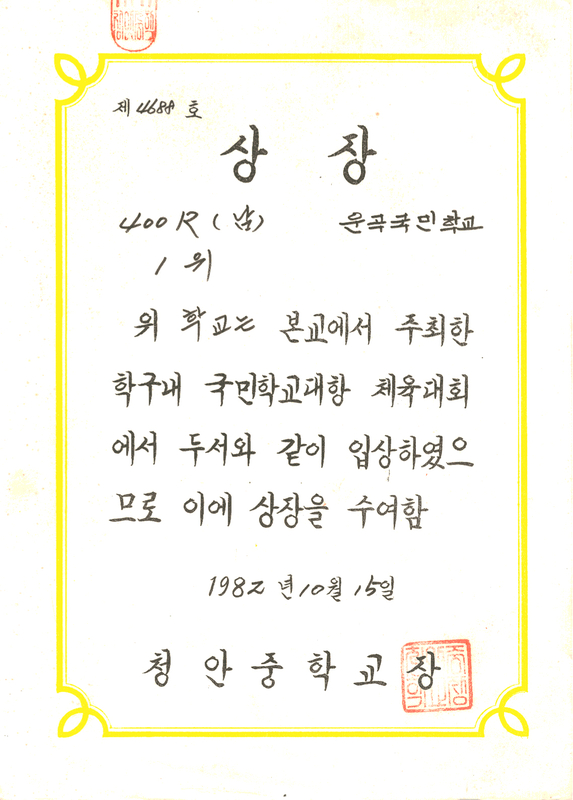 제 4688 호
상 장
400R(남) 운곡국민학교
1 위
위 학교는 본교에서 주최한
학구내 국민학교대항 체육대회
에서 두서와 같이 입상하였으
므로 이에 상장을 수여함
1982 년 10월 15일
청안중학교장